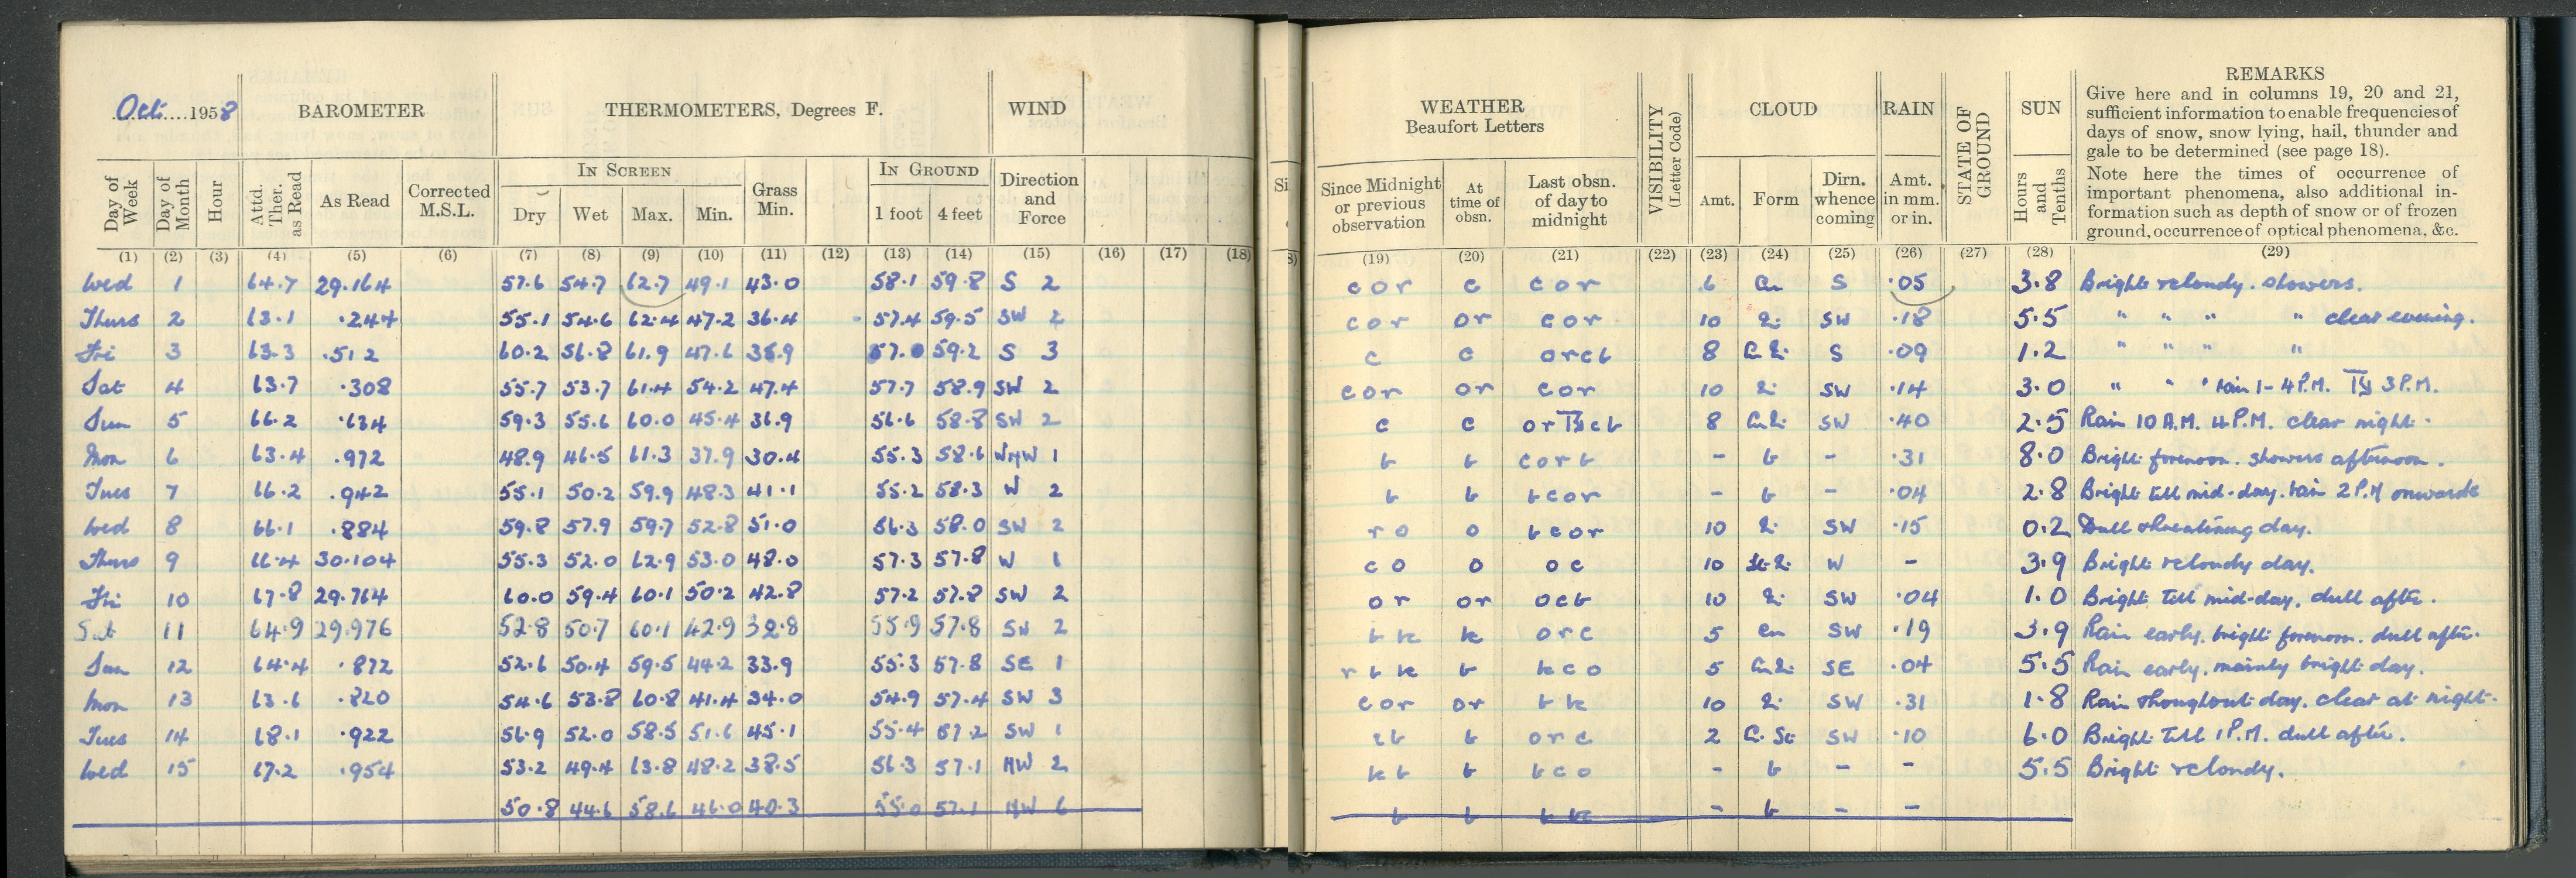 Oct. 1958 BAROMETER THERMOMETERS, Degrees F. WIND
Day of Week Day of Month Hour Attd. Ther. as Read As Read Corrected M.S.L. IN SCREEN Dry Wet Max. Min. Grass Min. IN GROUND 1 foot 4 feet Direction and Force
(1) (2) (3) (4) (5) (6) (7) (8) (9) (10) (11) (12) (13) (14) (15) (16) (17) (18)
Wed 1 64.7 29.164 57.6 54.7 62.7 49.1 43.0 58.1 59.8 S 2
Thurs 2 63.1 .244 55.1 54.6 62.4 47.2 36.4 57.4 59.5 SW 2
Fri 3 63.3 .512 60.2 56.8 61.9 47.6 35.9 57.0 59.2 S 3
Sat 4 63.7 .308 55.7 53.7 61.4 54.2 47.4 57.7 58.9 SW 2
Sun 5 66.2 .634 59.3 55.6 60.0 45.4 36.9 56.6 58.8 SW 2
Mon 6 63.4 .972 48.9 46.5 61.3 37.9 30.4 55.3 58.6 WNW 1
Tues 7 66.2 .942 55.1 50.2 59.9 48.3 41.1 55.2 58.3 W 2
Wed 8 66.1 .884 59.8 57.9 59.7 52.8 51.0 56.3 58.0 SW 2
Thurs 9 66.4 30.104 55.3 52.0 62.9 53.0 48.0 57.3 57.8 W 1
Fri 10 67.8 29.764 60.0 59.4 60.1 50.2 42.8 57.2 57.8 SW 2
Sat 11 64.9 29.976 52.8 50.7 60.1 42.9 32.8 55.9 57.8 SW 2
Sun 12 64.4 .872 52.6 50.4 59.5 44.2 33.9 55.3 57.8 SE 1
Mon 13 63.6 .820 54.6 53.8 60.8 41.4 34.0 54.9 57.4 SW 3
Tues 14 68.1 .922 56.9 52.0 58.5 51.6 45.1 55.4 57.2 SW 1
Wed 15 67.2 .954 53.2 49.4 63.8 48.2 38.5 56.3 57.1 NW 2
50.8 44.6 58.6 46.0 40.3 55.0 57.1 NW 6
Si
8)
WEATHER Beaufort Letters VISIBILITY (Letter Code) CLOUD RAIN STATE OF GROUND SUN REMARKS
Give here and in columns 19, 20 and 21,
sufficient information to enable frequencies of
days of snow, snow lying, hail, thunder and
gale to be determined (see page 18).
Note here the times of occurrence of
important phenomena, also additional in-
formation such as depth of snow or of frozen
ground, occurrence of optical phenomena, &c.
Since Midnight or previous observation At time of obsn. Last obsn. of day to midnight Amt. Form Dirn. whence coming Amt. in mm. or in. Hours and Tenths
(19) (20) (21) (22) (23) (24) (25) (26) (27) (28) (29)
c o r c c o r 6 Cu S .05 3.8 Bright & cloudy. showers.
c o r o r c o r 10 SW .18 5.5 " " " " clear evening.
c c o r c b 8 S .09 1.2 " " " "
c o r o r c o r 10 SW .14 3.0 " " " rain 1-4 P.M. 3 P.M.
c c 8 SW .40 2.5 Rain 10 A.M. 4 P.M. clear night.
b b c o r b - b - .31 8.0 Bright forenoon. showers afternoon.
b b b c o r - b - .04 2.8 Bright till mid-day. rain 2 P.M onwards
r o o b c o r 10 SW .15 0.2 Dull threatening day.
c o o o c 10 W - 3.9 Bright & cloudy day.
o r o r o c b 10 SW .04 1.0 Bright till mid-day. dull after.
o r c 5 Cu SW .19 3.9 Rain early. bright forenoon. dull after.
b 5 SE .04 5.5 Rain early. mainly bright day.
c o r o r 10 SW .31 1.8 Rain throughout day. clear at night.
b o r c 2 SW .10 6.0 Bright till 1 P.M. dull after.
b b c o - b - - 5.5 Bright & cloudy.
b b - b - -